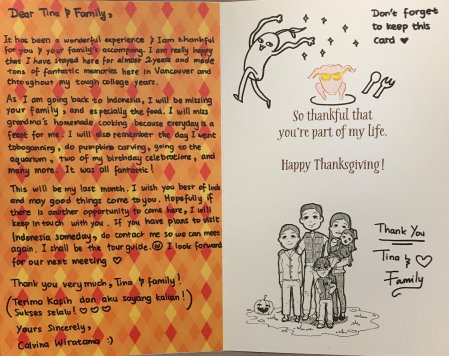 Dear Tina & Family,
It has been a wonderful experience & I am thankful
for you & your family's accompany. I am really happy
that I have stayed here for almost 2 years and made
tons of fantastic memories here in Vancouver and
throughout my tough college years.
As I am going back to Indonesia, I will be missing
your family, and especially the food. I will miss
grandma's homemade cooking because everyday is a
feast for me. I will also remember the day I went
toboganning, do pumpkins carving, going to the
aquarium, two of my birthday celebrations, and
many more. It was all fantastic!
This will be my last month. I wish you best of luck
and may good things come to you. Hopefully if
there is another opportunity to come here, I will
keep in touch with you. If you have plans to visit
Indonesia someday, do contact me so we can meet
again. I shall be the tour guide. I look forward
for our next meeting
Thank you very much, Tina & family!
(Terima Kasih dan aku sayang kalian!
Sukses selalu!)
Yours Sincerely,
Calvina Wiratama :)
Don't forget
to keep this
card
So thankful that
you're part of my life.
Happy Thanksgiving!
Thank You
Tina &
Family